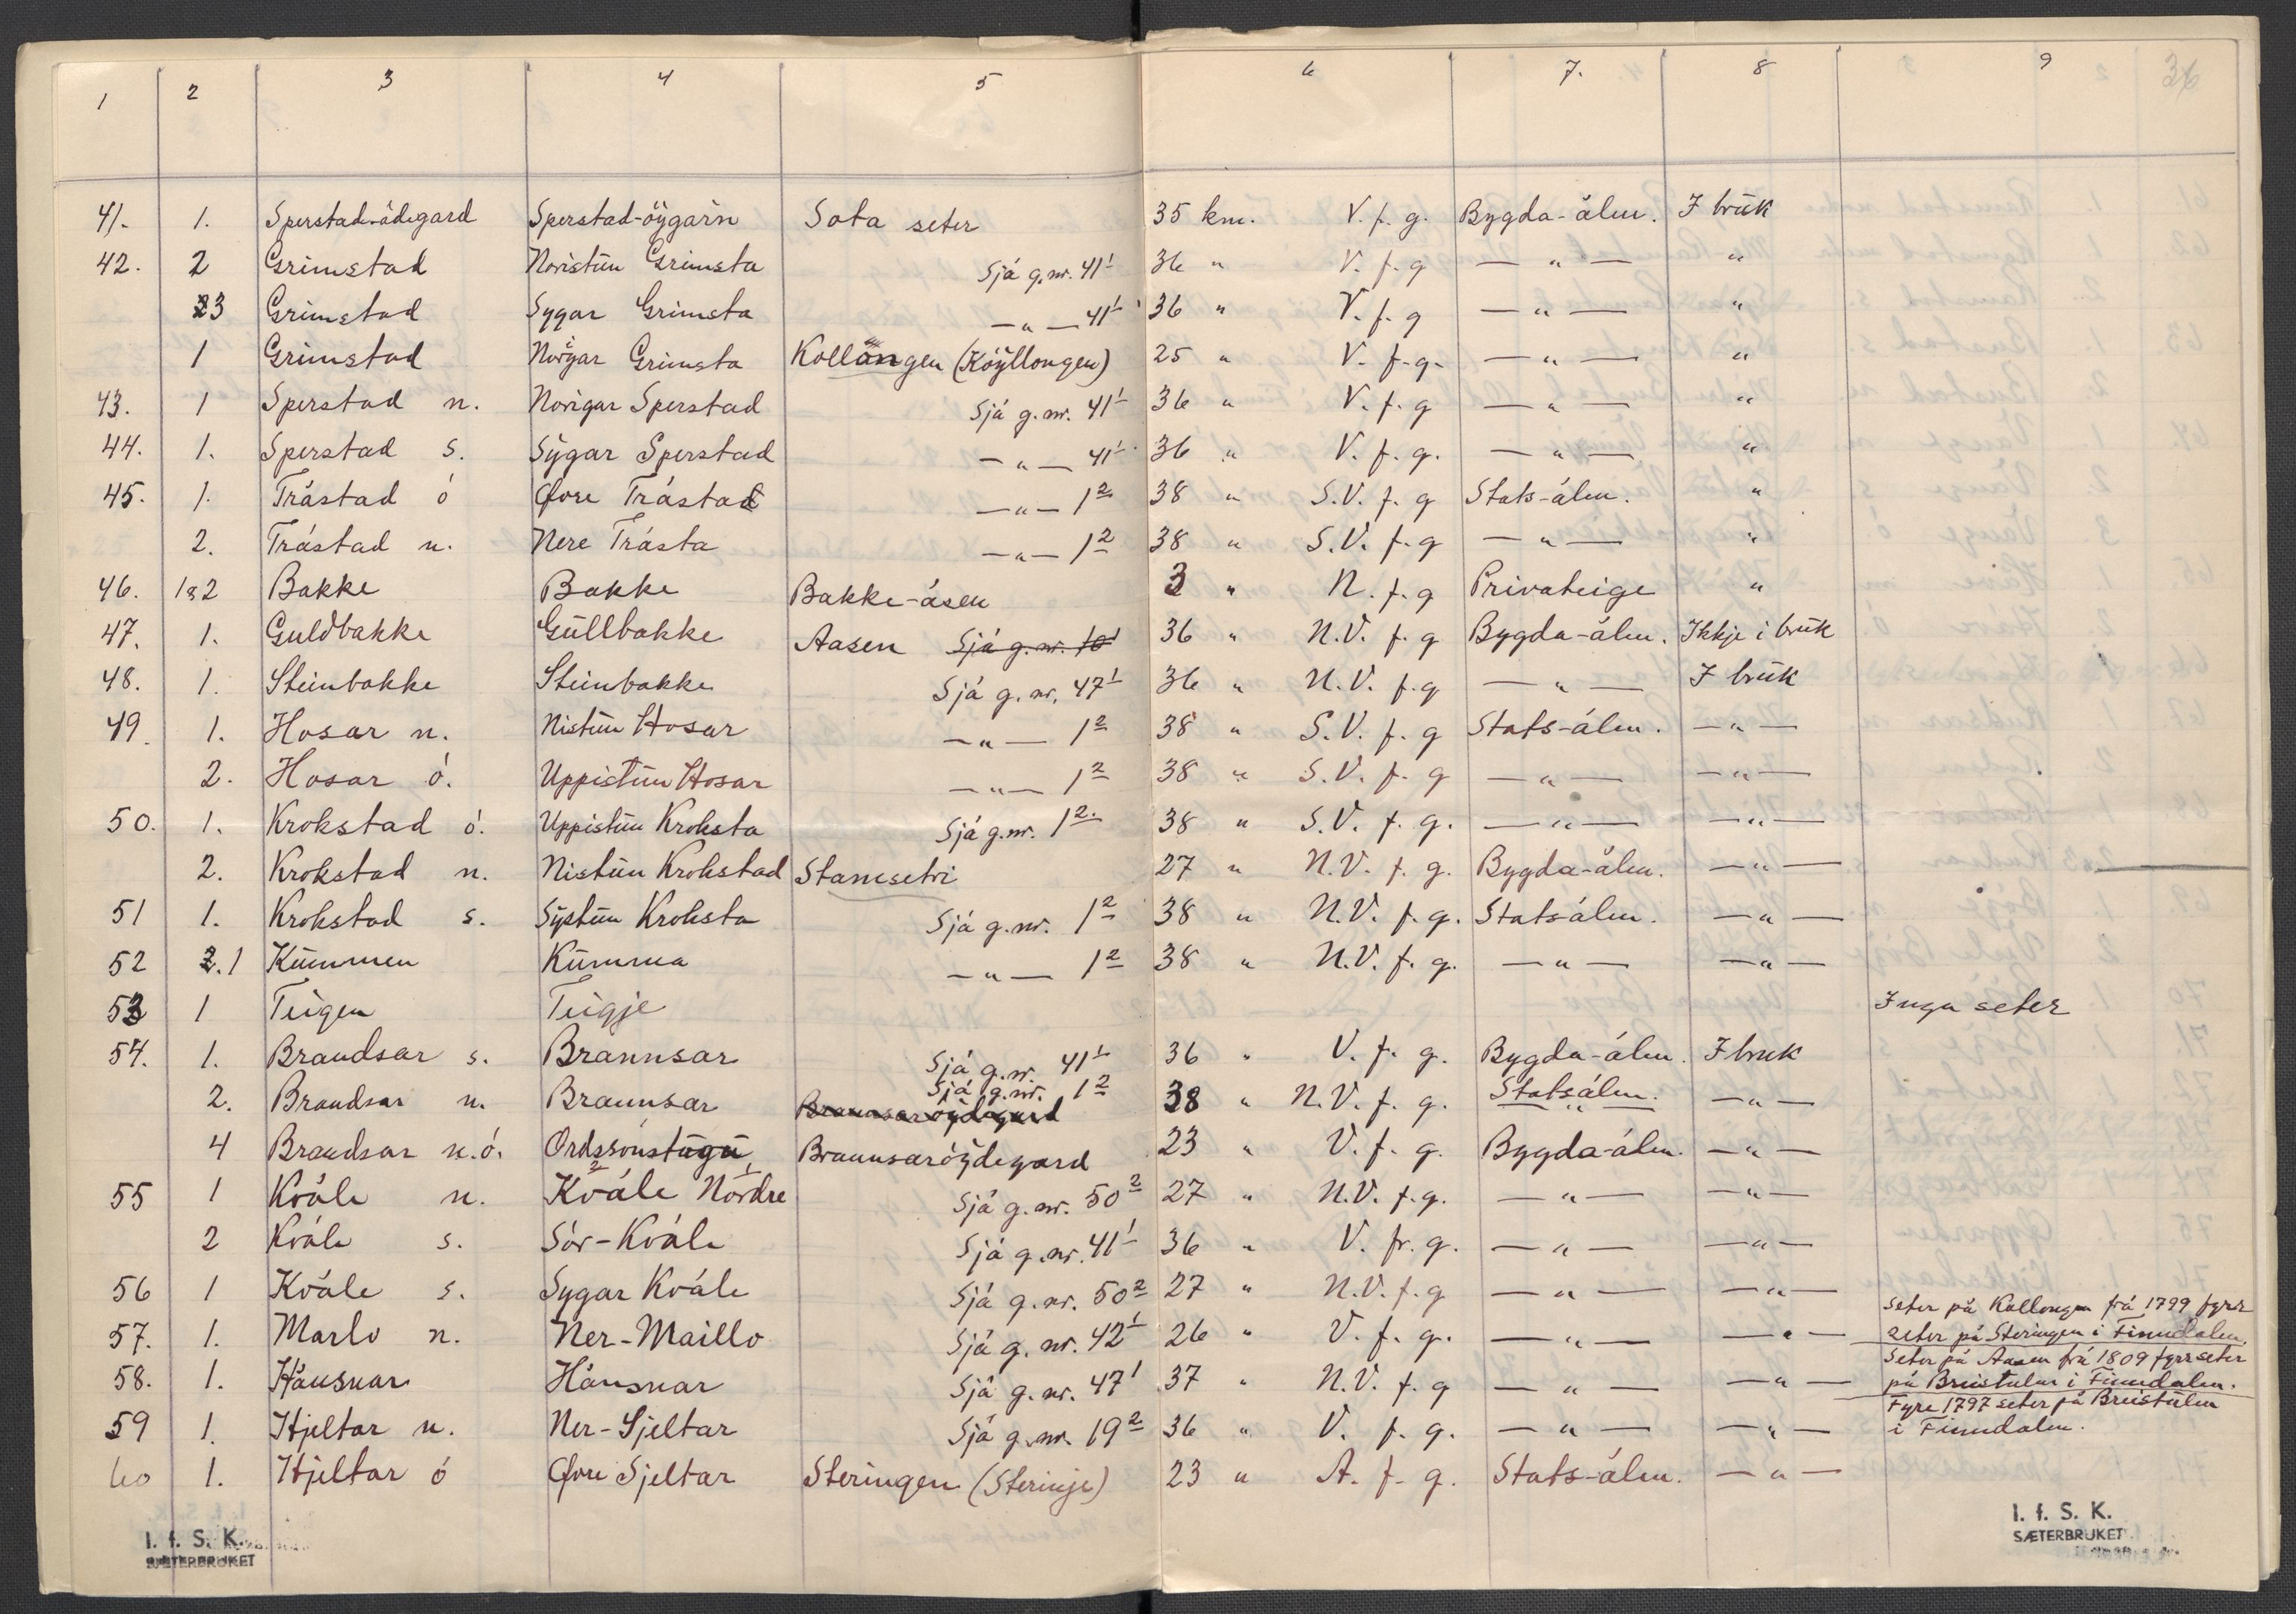 1 2 3 4 5 6 7. 8 9 36
41. 1. Sperstad-ødegard Sperstad-öÿgar'n Sota seter 35 km. V. f. g. Bygda-álm. I brūk
42. 2 Grimstad Noristūn Grimsta Sjá g.nr. 41¹ 36 " V. f. g — " — "
3 Grimstad Sygar Grimsta — " — 41¹ 36 " V. f. g — " — "
1 Grimstad Norigar Grimsta Kollangen (Köÿllongen) 25 " V. f. g. — " — "
43. 1 Sperstad n. Norigar Sperstad Sjá g.nr. 41¹ 36 " V. f. g — " — "
44. 1. Sperstad s. Sÿgar Sperstad — " — 41¹ 36 " V. f. g. — " — "
45. 1. Trástad ó Øvre Trástad — " — 1² 38 " S.V. f. g Stats-álm. "
2. Trástad n. Nere Trásta — " — 1² 38 " S.V. f. g — " — "
46. 1&2 Bakke Bakke Bakke-ásen 3 " N. f. g Privateige "
47. 1. Guldbakke Gūllbakke Aasen Sjá g.nr. 10¹ 36 " N.V. f. g Bygda-álm. Ikkje i brūk
48. 1. Steinbakke Steinbakke Sjá g.nr. 47¹ 36 " N.V. f. g — " — I brūk
49. 1. Hosar n. Nistūn Hosar — " — 1² 38 " S.V. f. g Stats-álm. — " —
2. Hosar ó. Uppistūn Hosar — " — 1² 38 " S.V. f. g — " — — " —
50. 1. Krokstad ó. Uppistūn Kroksta Sjá g.nr. 1² 38 " S.V. f. g. — " — — " —
2. Krokstad n. Nistūn Krokstad Stamsetri 27 " N.V. f. g. Bygda-álm. — " —
51 1. Krokstad s. Sÿstūn Kroksta Sjá g.nr. 1² 38 " N.V. f. g. Statsálm. — " —
52 1 Kūmmen Kūmma — " — 1² 38 " N.V. f. g. — " — — " —
53 1 Teigen Teigje Inga seter
54. 1. Brandsar s. Brannsar Sjá g.nr. 41¹ 36 " V. f. g. Bygda-álm. I bruk
2. Brandsar n. Brannsar Sjá g.nr. 1² Brannsaröÿdegard 38 " N.V. f. g. Statsálm. — " —
4 Brandsar n.ó. Ordssönstūgū Brannsaröÿdegard 23 " V. f. g. Bygda-álm. — " —
55 1 Kvåle n. Kvále Nórdre Sjá g.nr. 50² 27 " N.V. f. g. — " — — " —
2 Kvåle s. Sór-Kvåle Sjá g.nr. 41¹ 36 " V. fr. g. — " — — " —
56 1 Kvåle s. Sygar Kvåle Sjá g.nr. 50² 27 " N.V. f. g — " — — " —
57. 1. Marlo n. Ner-Maillo Sjá g.nr. 42¹ 26 " V. f. g. — " — — " — Seter på Kollongen frá 1799 fyrr
seter på Steringen i Finndalen.
58. 1. Háusnar Hánsnar Sjá g.nr. 47¹ 37 " N.V. f. g — " — — " — Seter på Aasen frá 1809 fyrr seter
på Breistulen i Finndalen.
59 1. Hjeltar n. Ner-Sjeltar Sjá g.nr. 19² 36 " V. f. g. — " — — " — Fyre 1797 seter på Breistūlen
i Finndalen.
60 1. Hjeltar ó Øvre Sjeltar Steringen (Sterinje) 23 " A. f. g. Stats-álm. — " —
I. f. S. K.
SÆTERBRUKET
I. f. S. K.
SÆTERBRUKET